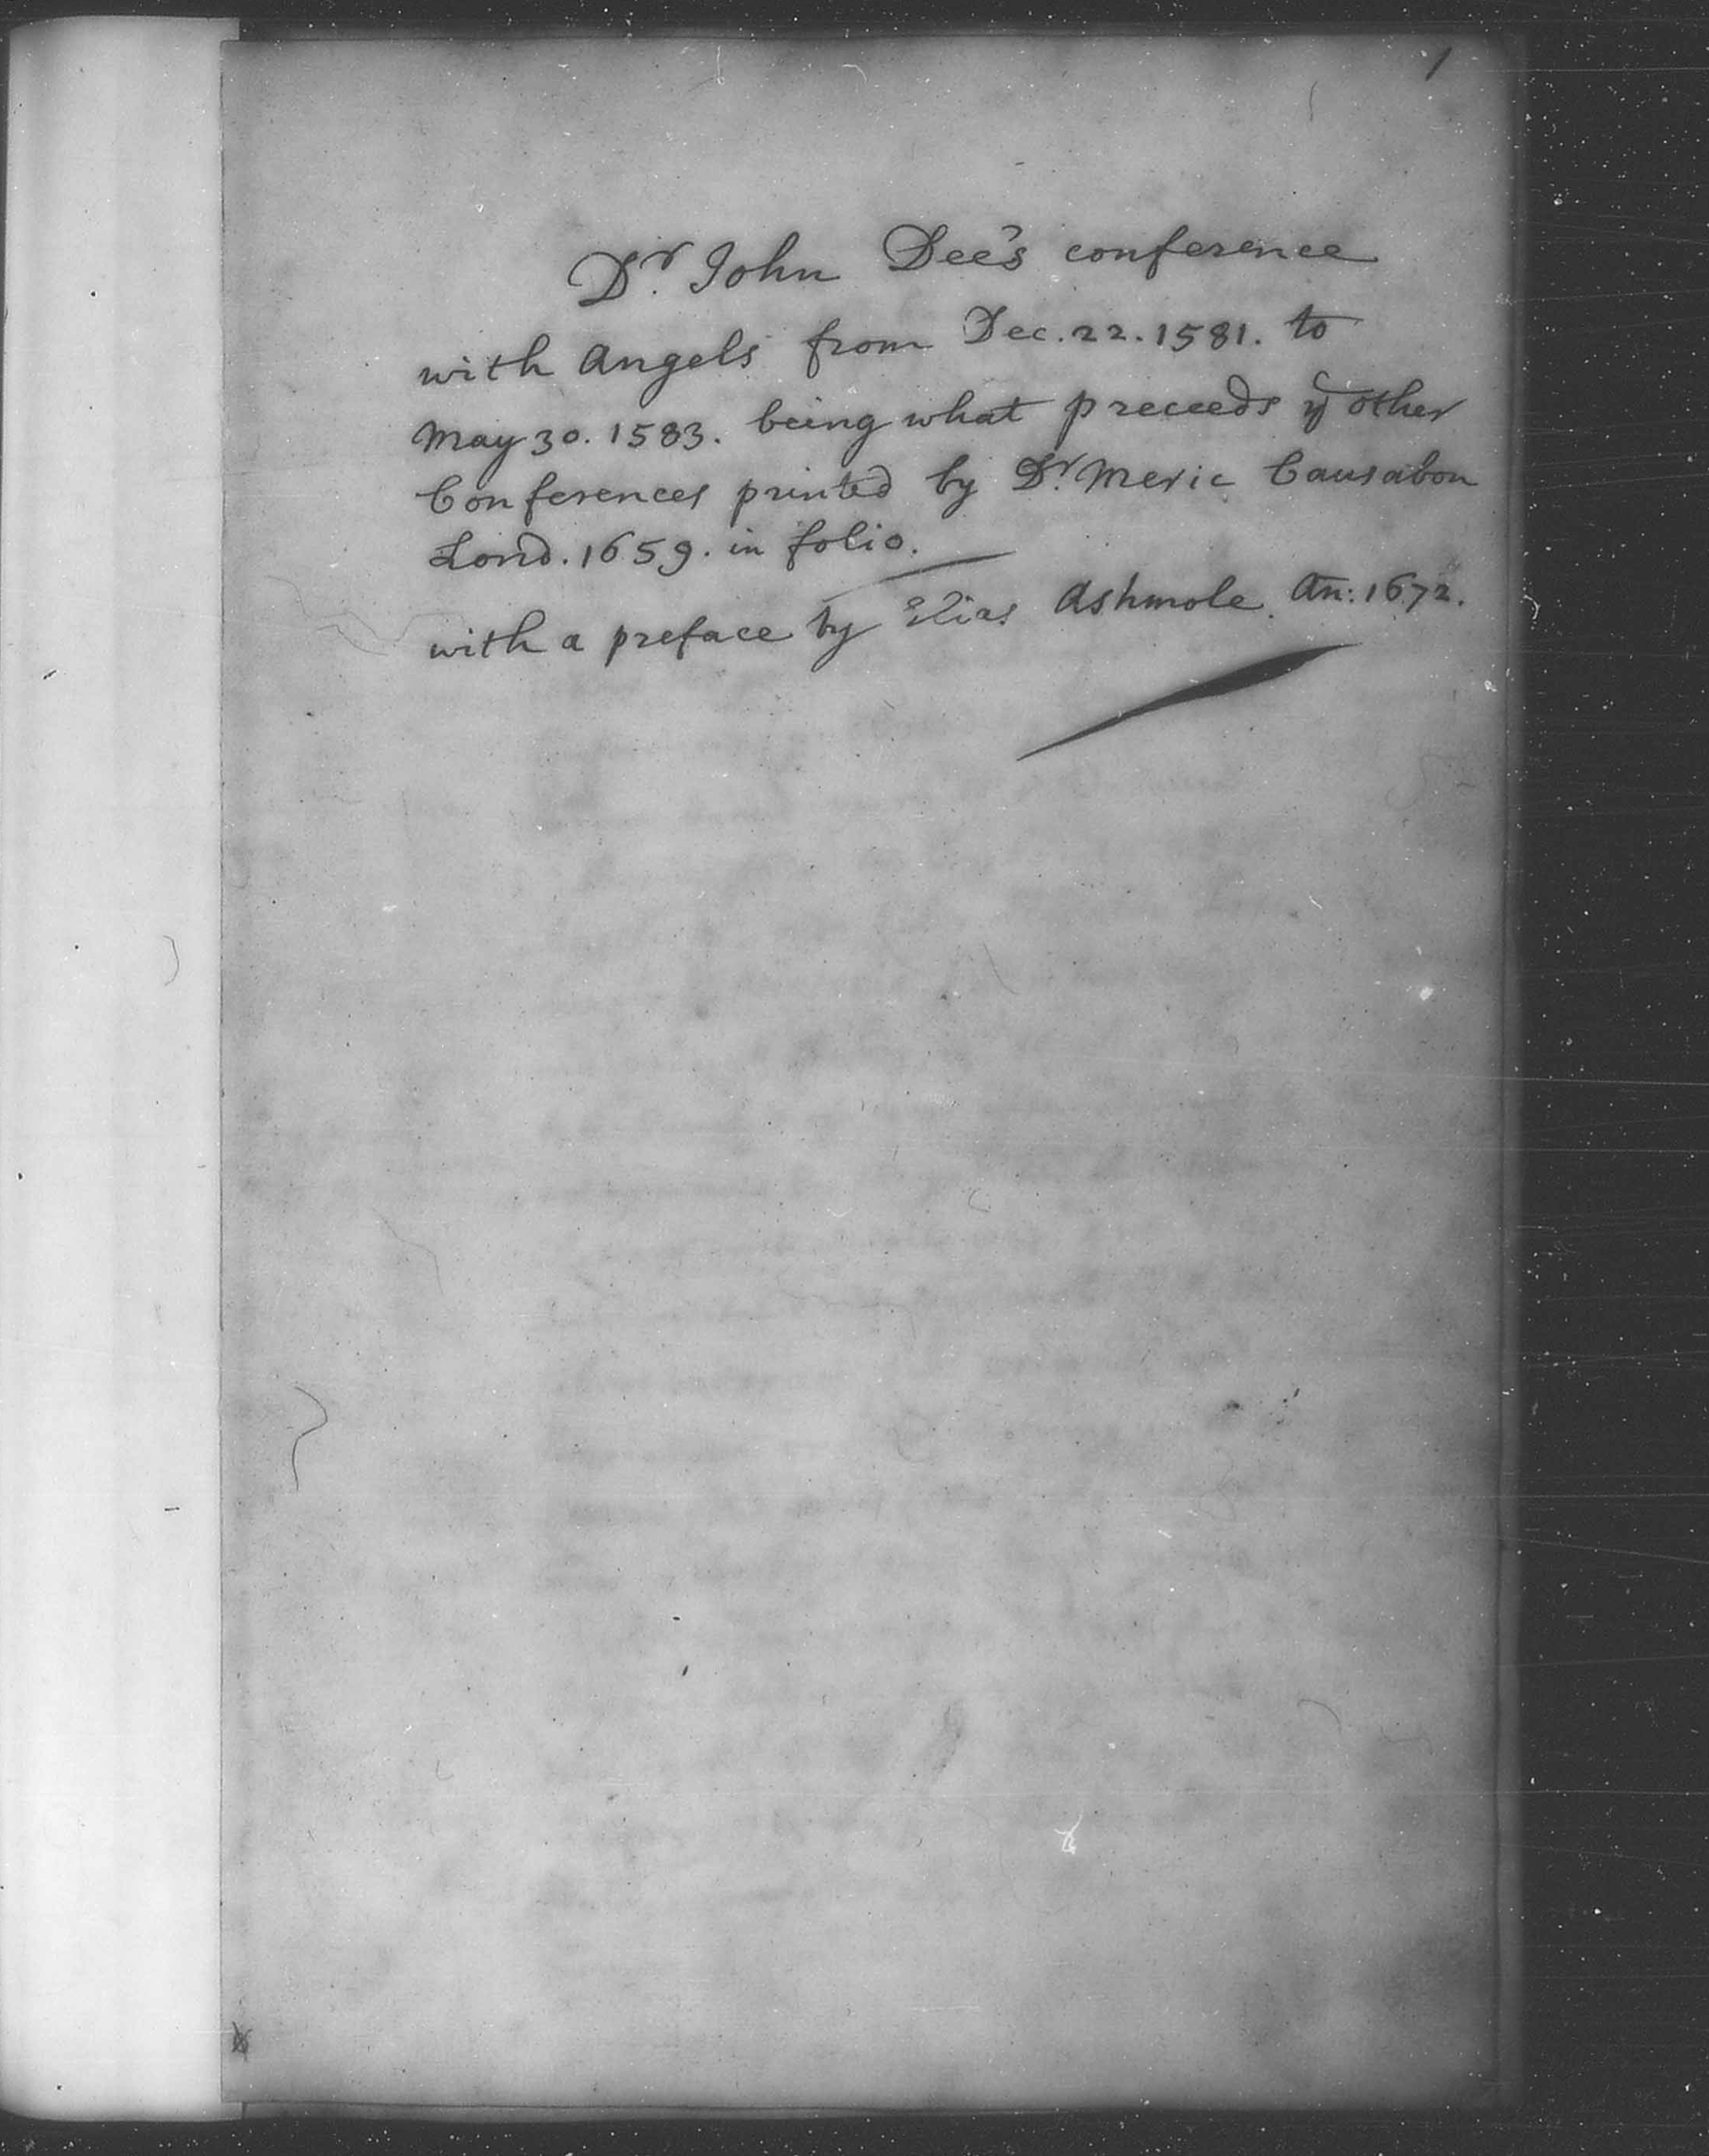 1
Dr. John Dee's conference
with Angels from Dec. 22. 1581. to
May 30. 1583. being what preceeds ye other
Conferences printed by Dr. Meric Causabon
Lond. 1659. in folio.
with a preface by Elias Ashmole. An: 1672.